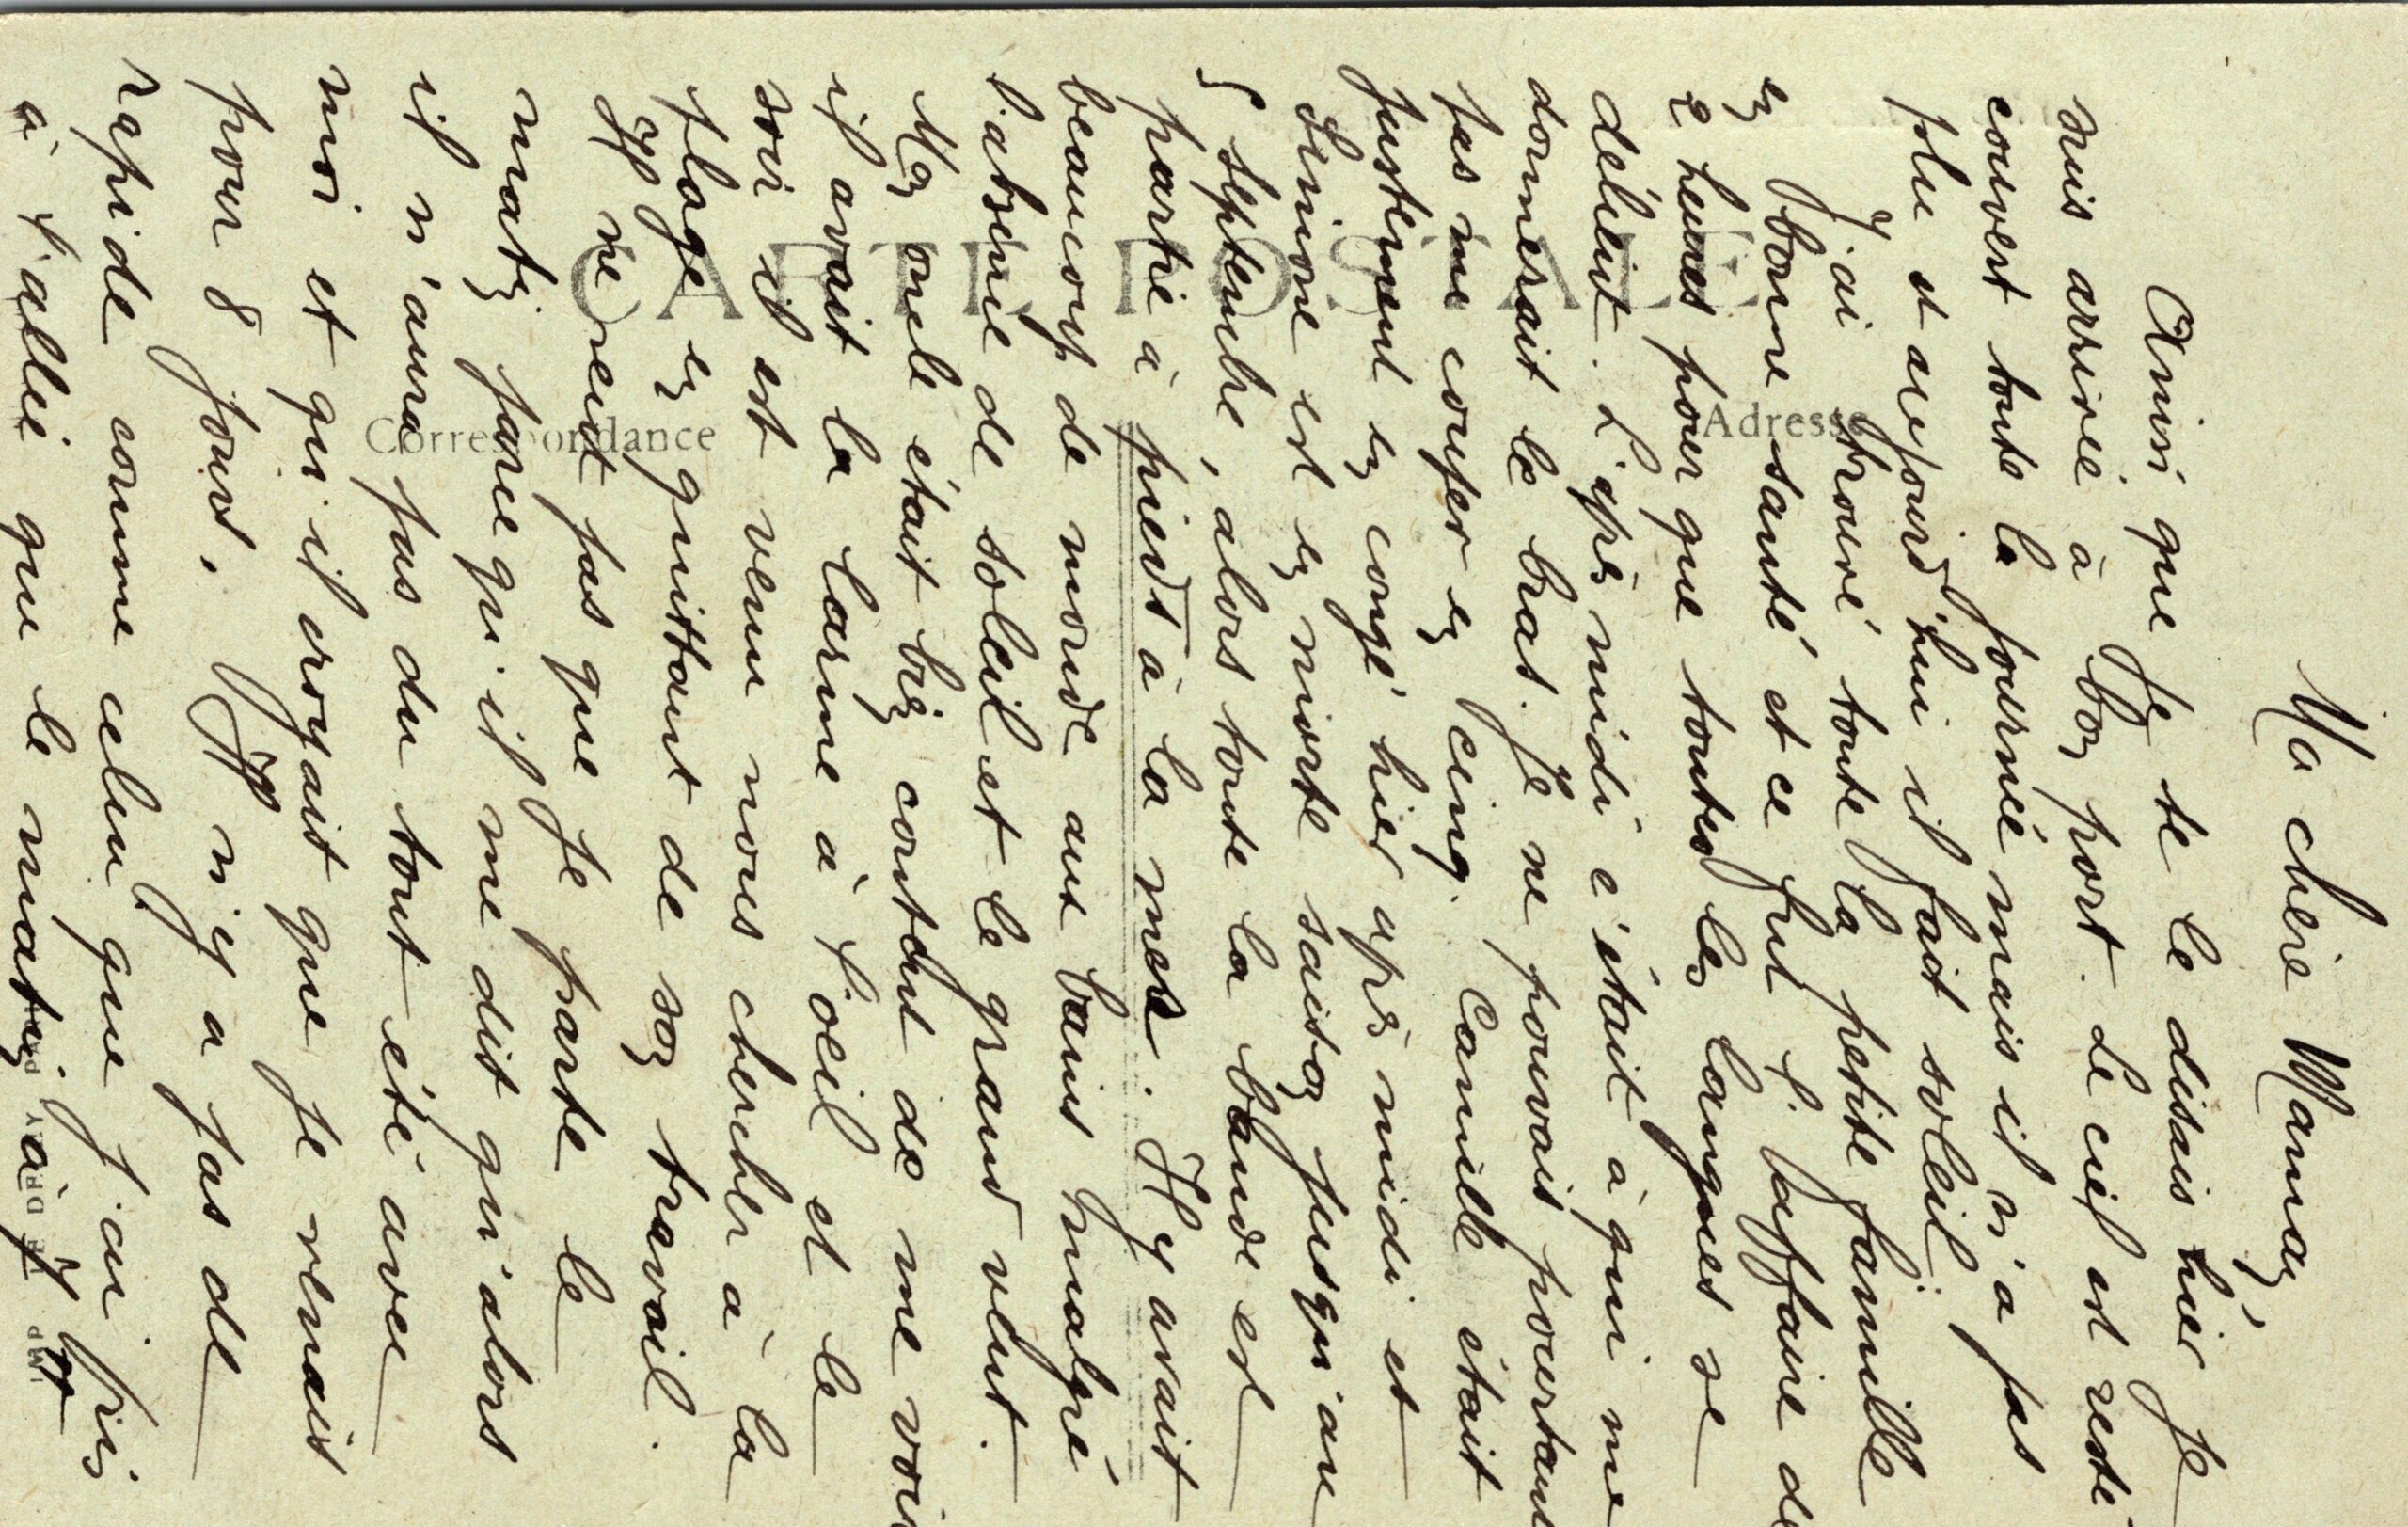 Ma chère Maman,
Ainsi que je te le disais hier je
suis arrivé à bon port. Le ciel est resté
couvert toute la journée mais il n'a pas
plu et aujourd'hui il fait soleil.
J'ai trouvé toute la petite famille
en bonne santé et ce fut l'affaire de
2 heures pour que toutes les langues se
délient. L'après midi c'était à qui me
donnerait le bras. Je ne pouvais pourtant
pas me couper en cinq. Camille était
justement en congé hier après midi et
Simone est en morte saison jusqu'au
5 septembre, alors toute la bande est
partie à pieds à la mer. Il y avait
beaucoup de monde aux bains malgré
l'absence de soleil et le grand vent.
Mon oncle était bien content de me voir
il avait la larme à l'oeil et le
soir il est venu nous chercher à la
plage en quittant de son travail.
Il ne veut pas que je parte le
matin parce qu'il me dit qu'alors
il n'aura pas du tout été avec
moi et qu'il croyait que je venais
pour 8 jours. Il n'y a pas de
rapide comme celui que j'ai pris
à l'aller que le matin à 7
CARTE POSTALE
Correspondance
Adresse